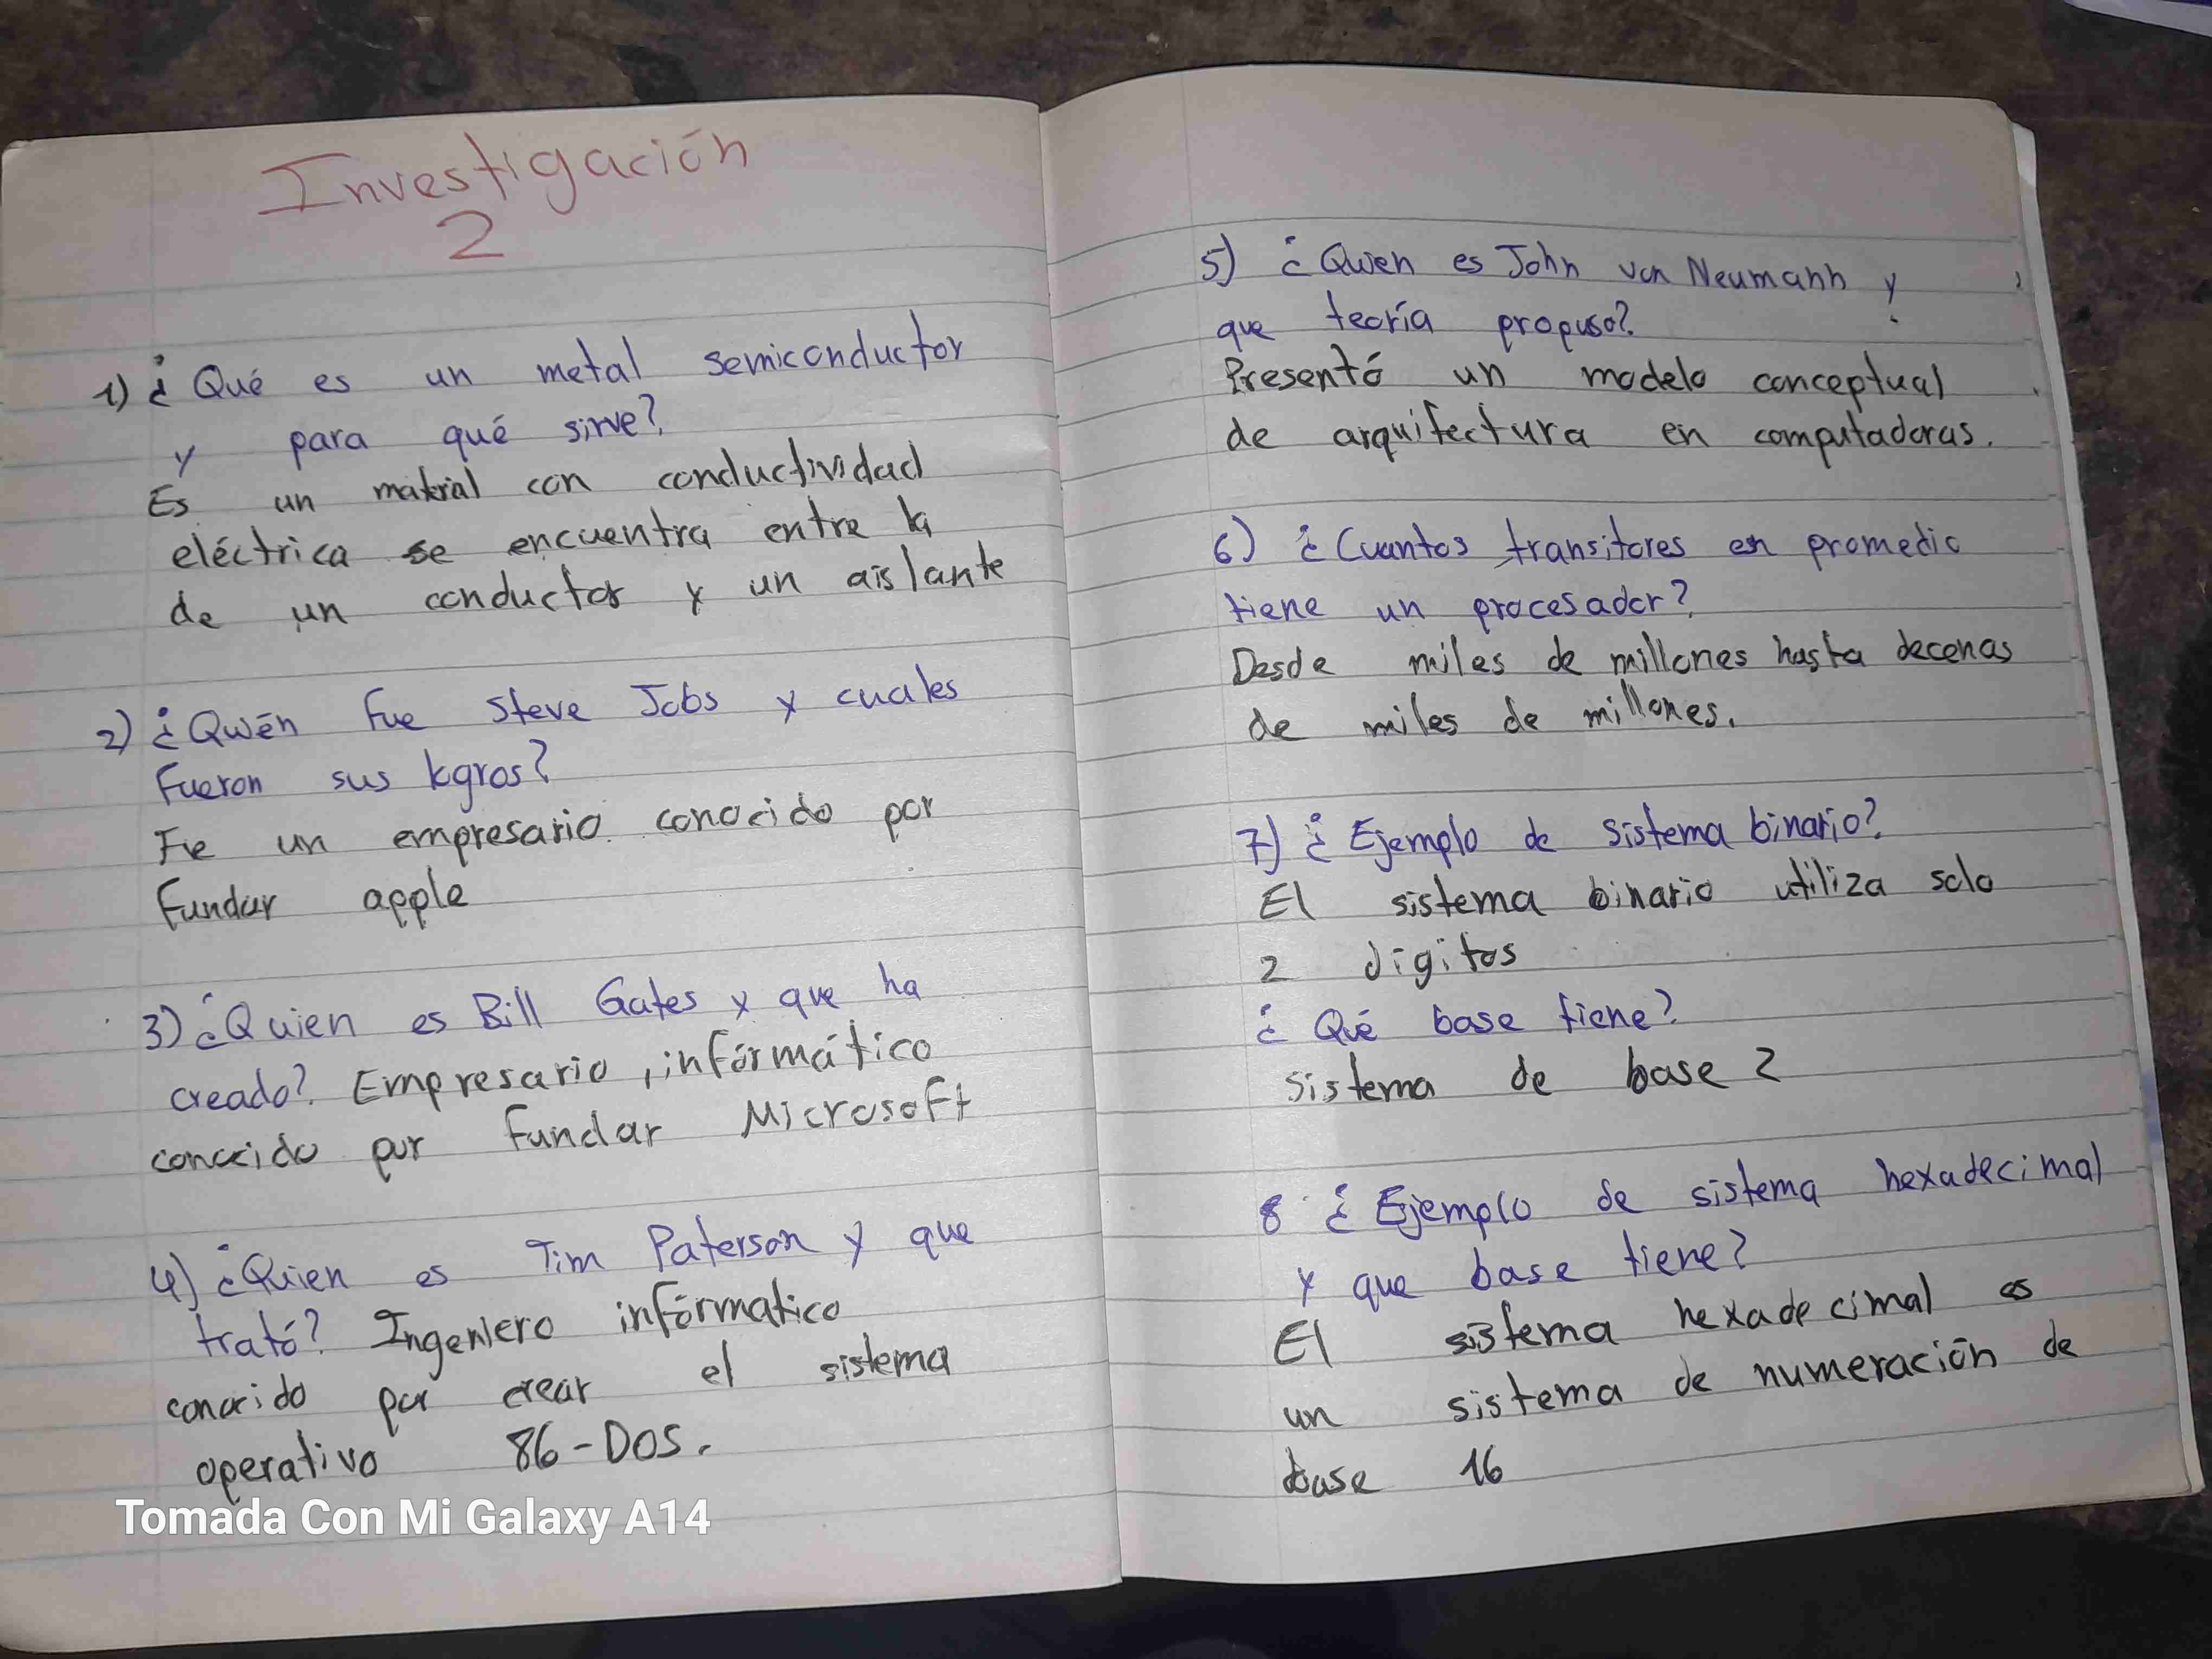 Investigación
2
1) ¿Qué es un metal semiconductor
y para qué sirve?
Es un material con conductividad
eléctrica se encuentra entre la
de un conductor y un aislante
2) ¿Quién fue Steve Jobs y cuales
fueron sus logros?
Fue un empresario conocido por
fundar apple
3) ¿Quien es Bill Gates y que ha
creado? Empresario, informático
conocido por fundar Microsoft
4) ¿Quien es Tim Paterson y que
trató? Ingeniero informatico
conocido por crear el sistema
operativo 86-DOS.
Tomada Con Mi Galaxy A14
5) ¿Quien es John von Neumann y
que teoría propuso?
Presentó un modelo conceptual
de arquitectura en computadoras.
6) ¿Cuantos transitores en promedio
tiene un procesador?
Desde miles de millones hasta decenas
de miles de millones.
7) ¿Ejemplo de sistema binario?
El sistema binario utiliza solo
2 digitos
¿Qué base tiene?
sistema de base 2
8 ¿Ejemplo de sistema hexadecimal
y que base tiene?
El sistema hexadecimal es
un sistema de numeración de
base 16